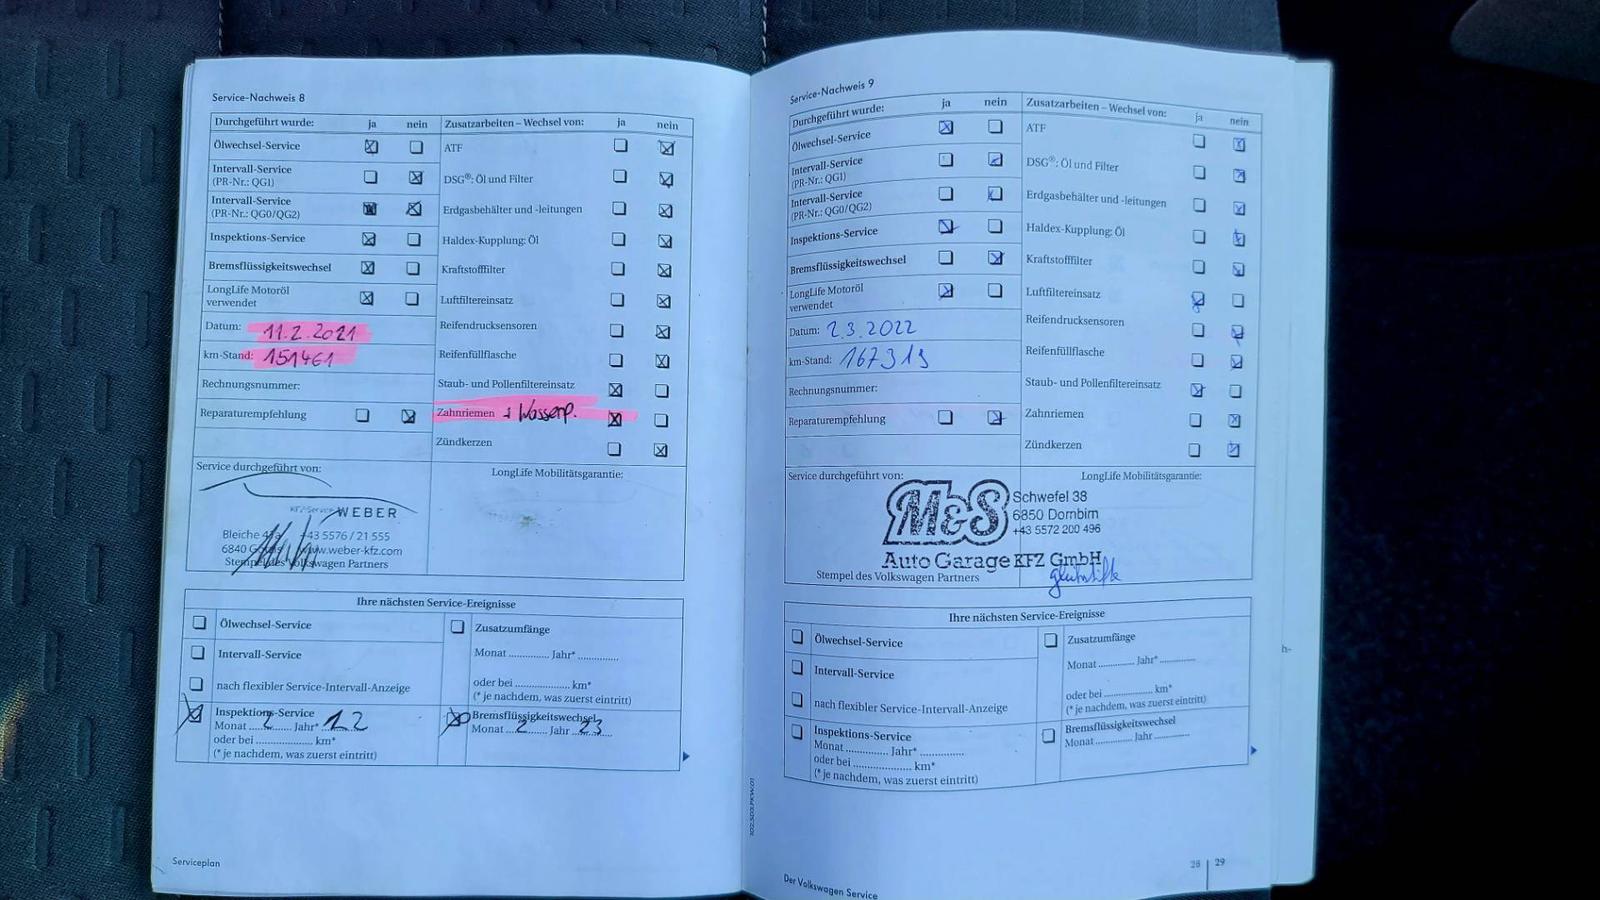 Service-Nachweis 8
Durchgeführt wurde: ja nein
Ölwechsel-Service
Intervall-Service
(PR-Nr.: QG1)
Intervall-Service
(PR-Nr.: QG0/QG2)
Inspektions-Service
Bremsflüssigkeitswechsel
LongLife Motoröl
verwendet
Datum: 11.2.2021
km-Stand: 151461
Rechnungsnummer:
Reparaturempfehlung
Zusatzarbeiten – Wechsel von: ja nein
ATF
DSG®: Öl und Filter
Erdgasbehälter und -leitungen
Haldex-Kupplung: Öl
Kraftstofffilter
Luftfiltereinsatz
Reifendrucksensoren
Reifenfüllflasche
Staub- und Pollenfiltereinsatz
Zahnriemen + Wasserp.
Zündkerzen
Service durchgeführt von:
LongLife Mobilitätsgarantie:
KFZ-Service WEBER
Bleiche +43 5576 / 21 555
6840 www.weber-kfz.com
Stempel des Volkswagen Partners
Ihre nächsten Service-Ereignisse
Ölwechsel-Service
Intervall-Service
nach flexibler Service-Intervall-Anzeige
Inspektions-Service
Monat 2 Jahr* 22
oder bei .................... km*
(* je nachdem, was zuerst eintritt)
Zusatzumfänge
Monat .............. Jahr* ..............
oder bei .................... km*
(* je nachdem, was zuerst eintritt)
Bremsflüssigkeitswechsel
Monat 2 Jahr 23
Serviceplan
Service-Nachweis 9
Durchgeführt wurde: ja nein
Ölwechsel-Service
Intervall-Service
(PR-Nr.: QG1)
Intervall-Service
(PR-Nr.: QG0/QG2)
Inspektions-Service
Bremsflüssigkeitswechsel
LongLife Motoröl
verwendet
Datum: 2.3.2022
km-Stand: 167319
Rechnungsnummer:
Reparaturempfehlung
Zusatzarbeiten – Wechsel von: ja nein
ATF
DSG®: Öl und Filter
Erdgasbehälter und -leitungen
Haldex-Kupplung: Öl
Kraftstofffilter
Luftfiltereinsatz
Reifendrucksensoren
Reifenfüllflasche
Staub- und Pollenfiltereinsatz
Zahnriemen
Zündkerzen
Service durchgeführt von:
LongLife Mobilitätsgarantie:
M&S
Schwefel 38
6850 Dornbirn
+43 5572 200 496
Auto Garage KFZ GmbH
Stempel des Volkswagen Partners
Ihre nächsten Service-Ereignisse
Ölwechsel-Service
Intervall-Service
nach flexibler Service-Intervall-Anzeige
Inspektions-Service
Monat .............. Jahr* ..............
oder bei .................... km*
(* je nachdem, was zuerst eintritt)
Zusatzumfänge
Monat .............. Jahr* ..............
oder bei .................... km*
(* je nachdem, was zuerst eintritt)
Bremsflüssigkeitswechsel
Monat .............. Jahr ..............
h-
Der Volkswagen Service
28 | 29